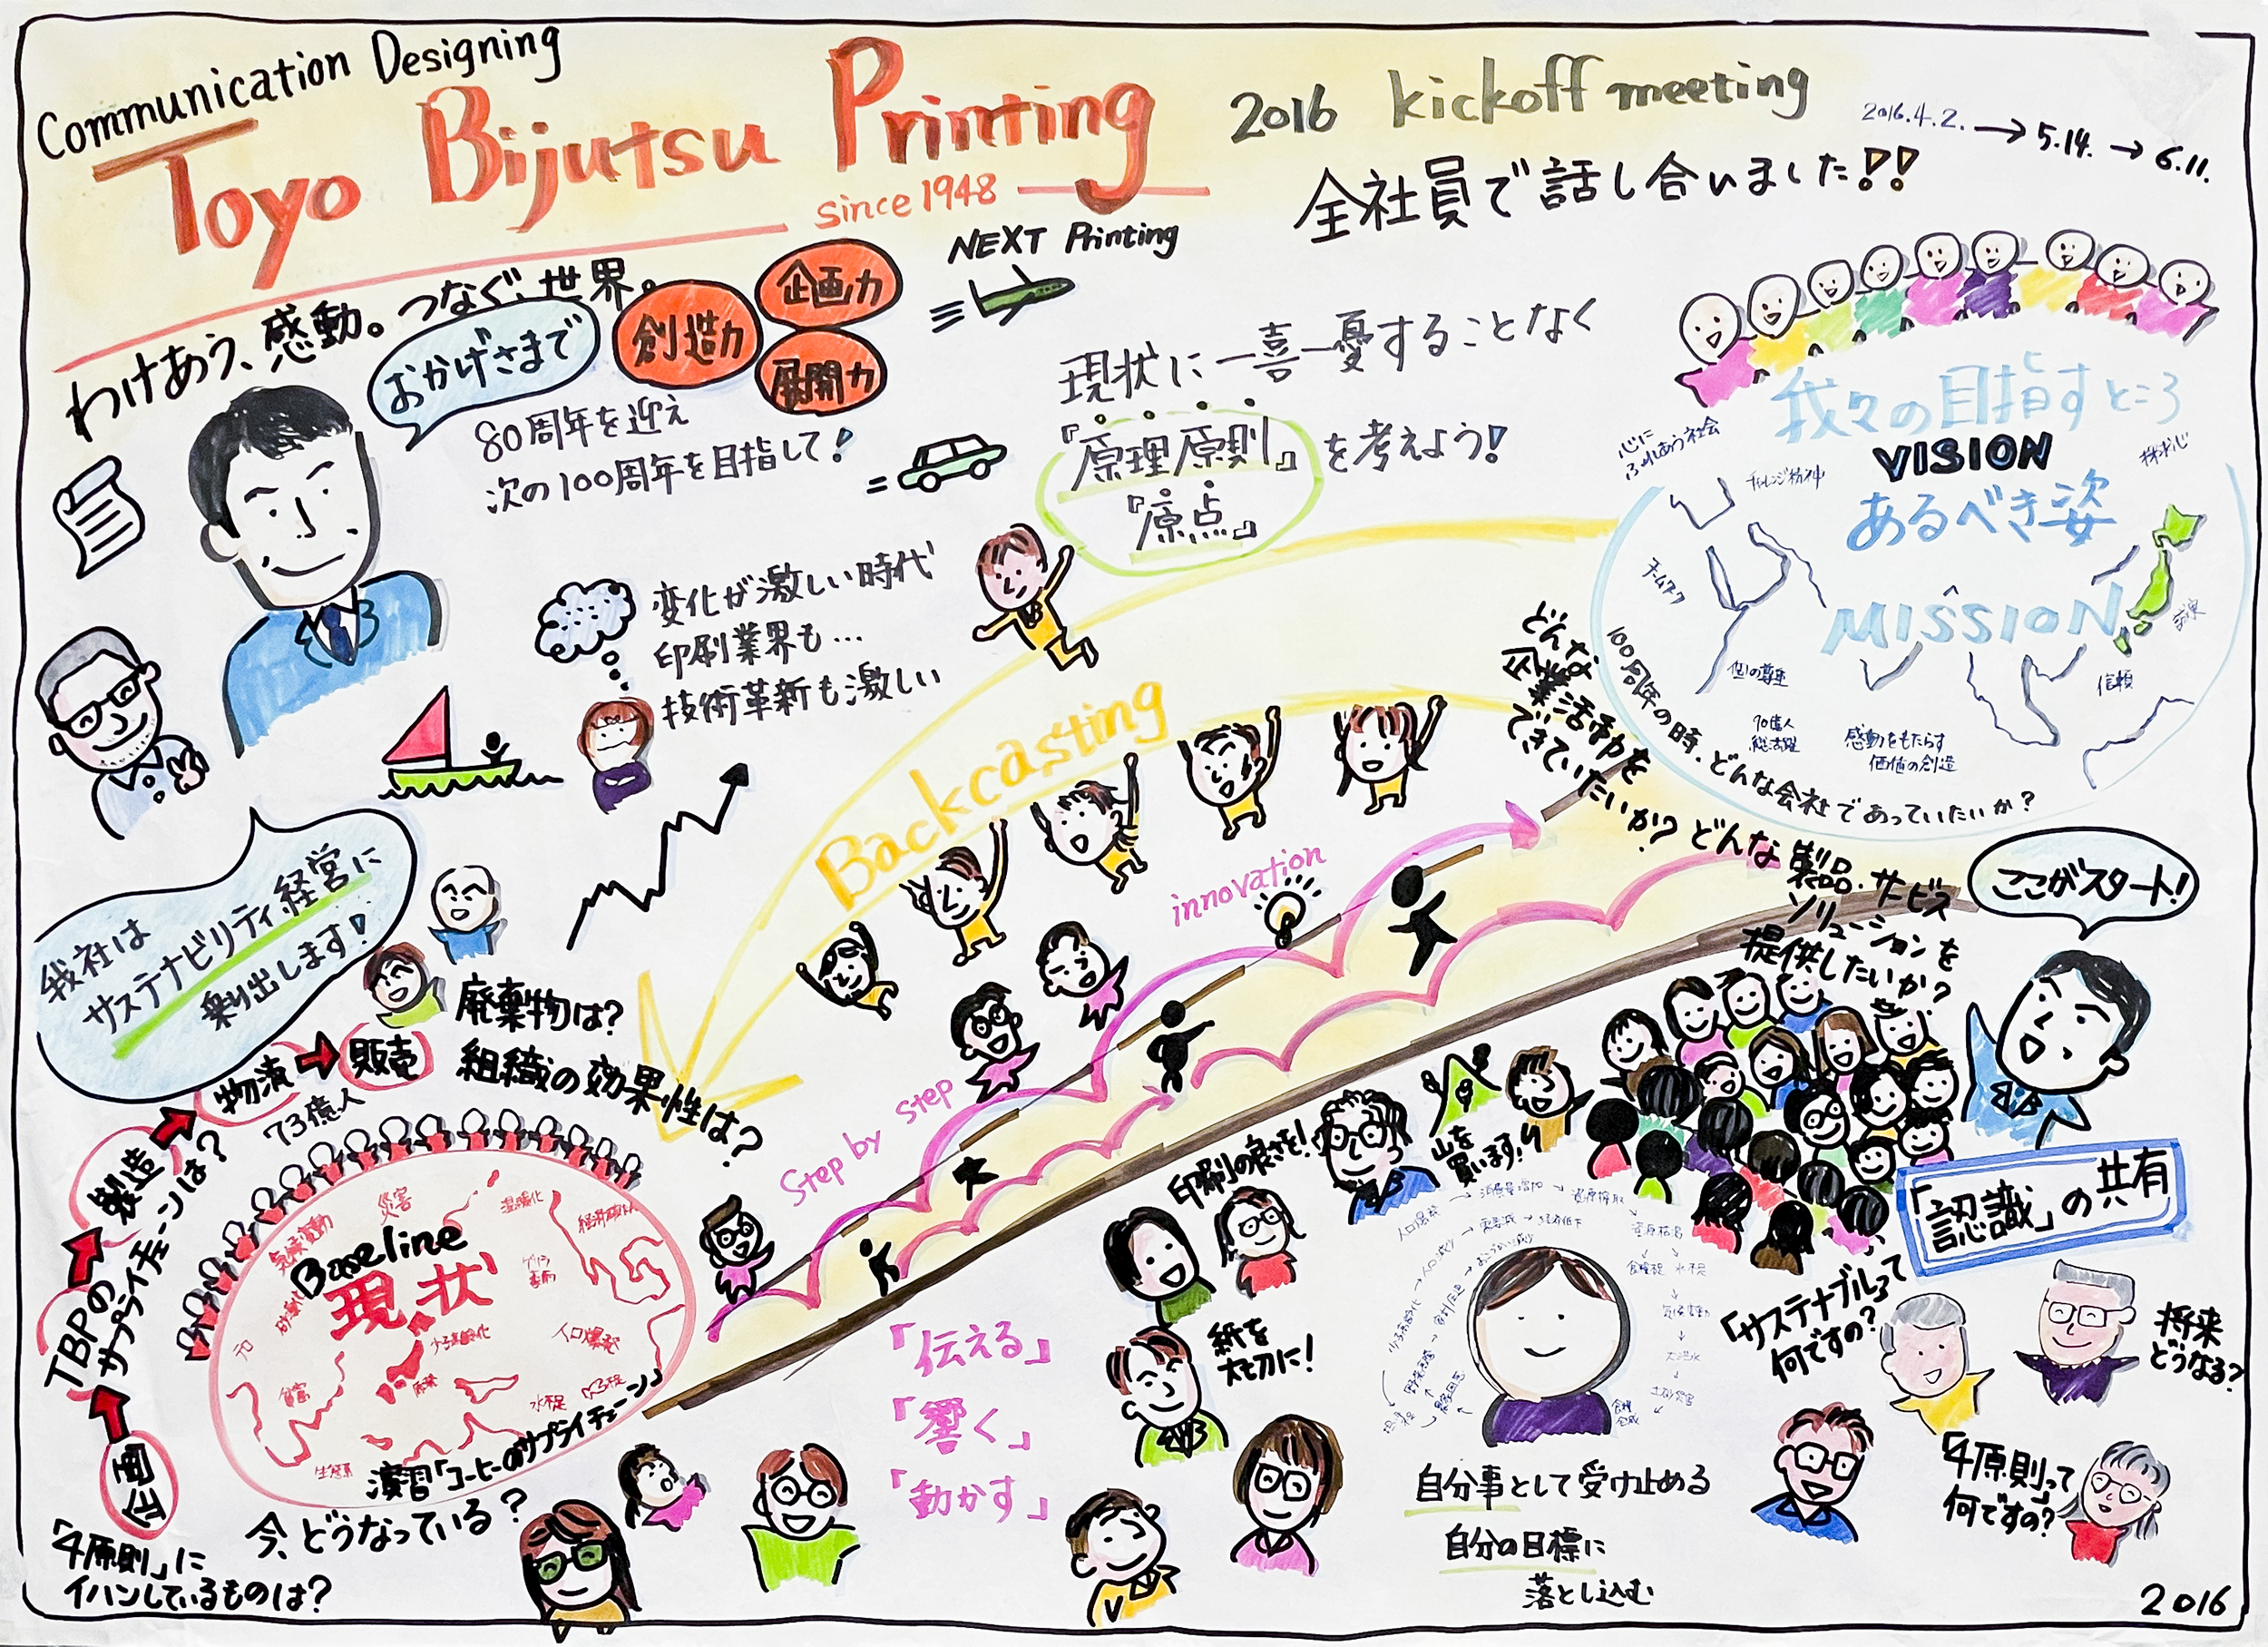 Communication Designing
Toyo Bijutsu Printing
since 1948
2016 kickoff meeting
2016.4.2. → 5.14. → 6.11.
全社員で話し合いました!!
わけあう、感動。つなぐ、世界。
おかげさまで
創造力
企画力
展開力
NEXT Printing
80周年を迎え
次の100周年を目指して!
現状に一喜一憂することなく
『原理原則』を考えよう!
『原点』
変化が激しい時代
印刷業界も…
技術革新も激しい
我々の目指すところ
VISION
あるべき姿
MISSION
心に
ふれあう社会
チャレンジ精神
チームワーク
個の尊重
70億人
総活躍
感動をもたらす
価値の創造
信頼
100周年の時、どんな会社であっていたいか?
どんな
企業活動を
できていたいか?
どんな製品・サービス
ソリューションを
提供したいか?
Backcasting
innovation
Step by Step
我社は
サステナビリティ経営に
乗り出します!
廃棄物は?
組織の効果性は?
企画
製造
物流
販売
TBPの
サプライチェーンは?
73億人
Baseline
現状
災害
温暖化
気候変動
砂漠化
少子高齢化
人口爆発
貧富
水不足
生態系
演習「コーヒーのサプライチェーン」
今、どうなっている?
「4原則」に
イハンしているものは?
「伝える」
「響く」
「動かす」
印刷の良さを!
山を
買います!!
紙を
大切に!
ここがスタート!
「認識」の共有
人口爆発
消費量増加
資源搾取
資源枯渇
食糧不足
水不足
気候変動
大洪水
土砂災害
「サステナブル」って
何ですの?
将来
どうなる?
「4原則」って
何ですの?
自分事として受け止める
自分の目標に
落とし込む
2016